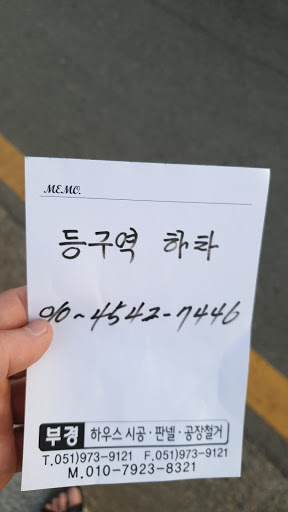 MEMO.
등구역 하차
010-4542-7446
부경 하우스 시공·판넬·공장철거
T.051)973-9121 F.051)973-9121
M.010-7923-8321